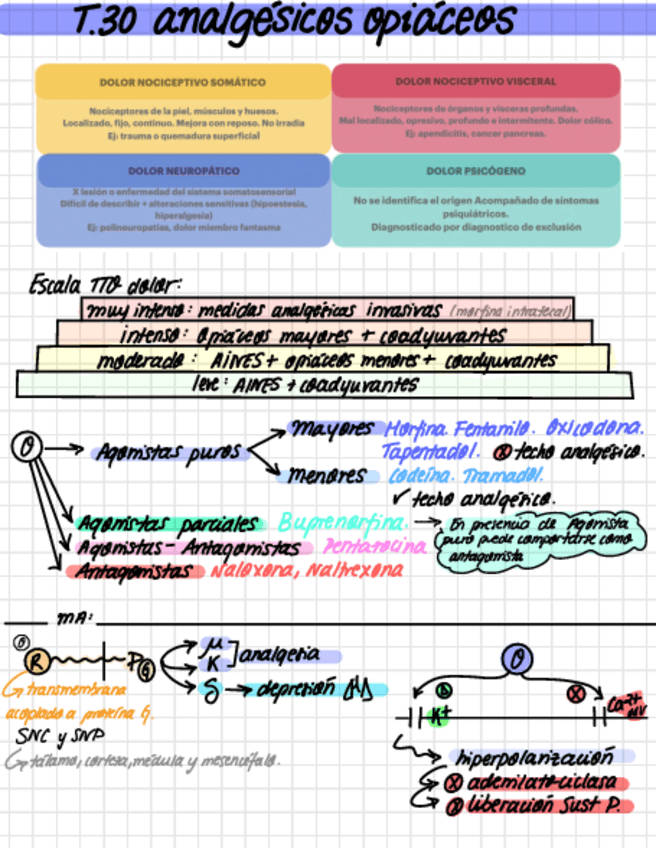 T.30 analgésicos opiáceos
DOLOR NOCICEPTIVO SOMÁTICO
Nociceptores de la piel, músculos y huesos.
Localizado, fijo, continuo. Mejora con reposo. No irradia
Ej: trauma o quemadura superficial
DOLOR NOCICEPTIVO VISCERAL
Nociceptores de órganos y vísceras profundas.
Mal localizado, opresivo, profundo e intermitente. Dolor cólico.
Ej: apendicitis, cancer pancreas.
DOLOR NEUROPÁTICO
X lesión o enfermedad del sistema somatosensorial
Difícil de describir + alteraciones sensitivas (hipoestesia,
hiperalgesia)
Ej: polineuropatías, dolor miembro fantasma
DOLOR PSICÓGENO
No se identifica el origen Acompañado de síntomas
psiquiátricos.
Diagnosticado por diagnostico de exclusión
Escala TTO dolor:
muy intenso: medidas analgésicas invasivas (morfina intratecal)
intenso: Opiáceos mayores + coadyuvantes
moderado: AINES + opiáceos menores + coadyuvantes
leve: AINES + coadyuvantes
O → Agonistas puros
Mayores Morfina. Fentanilo. Oxicodona.
Tapentadol. X techo analgésico.
Menores Codeína. Tramadol.
✓ techo analgésico.
Agonistas parciales Buprenorfina. →
En presencia de Agonista
puro puede comportarse como
antagonista
Agonistas-Antagonistas Pentazocina
Antagonistas Naloxona, Naltrexona
MA:
O
R P G
transmembrana
acoplado a proteína G.
SNC y SNP
tálamo, corteza, médula y mesencéfalo.
μ
K ] analgesia
δ → depresión
O
K+ X Ca2+
hiperpolarización
X adenilato ciclasa
X liberación Sust P.